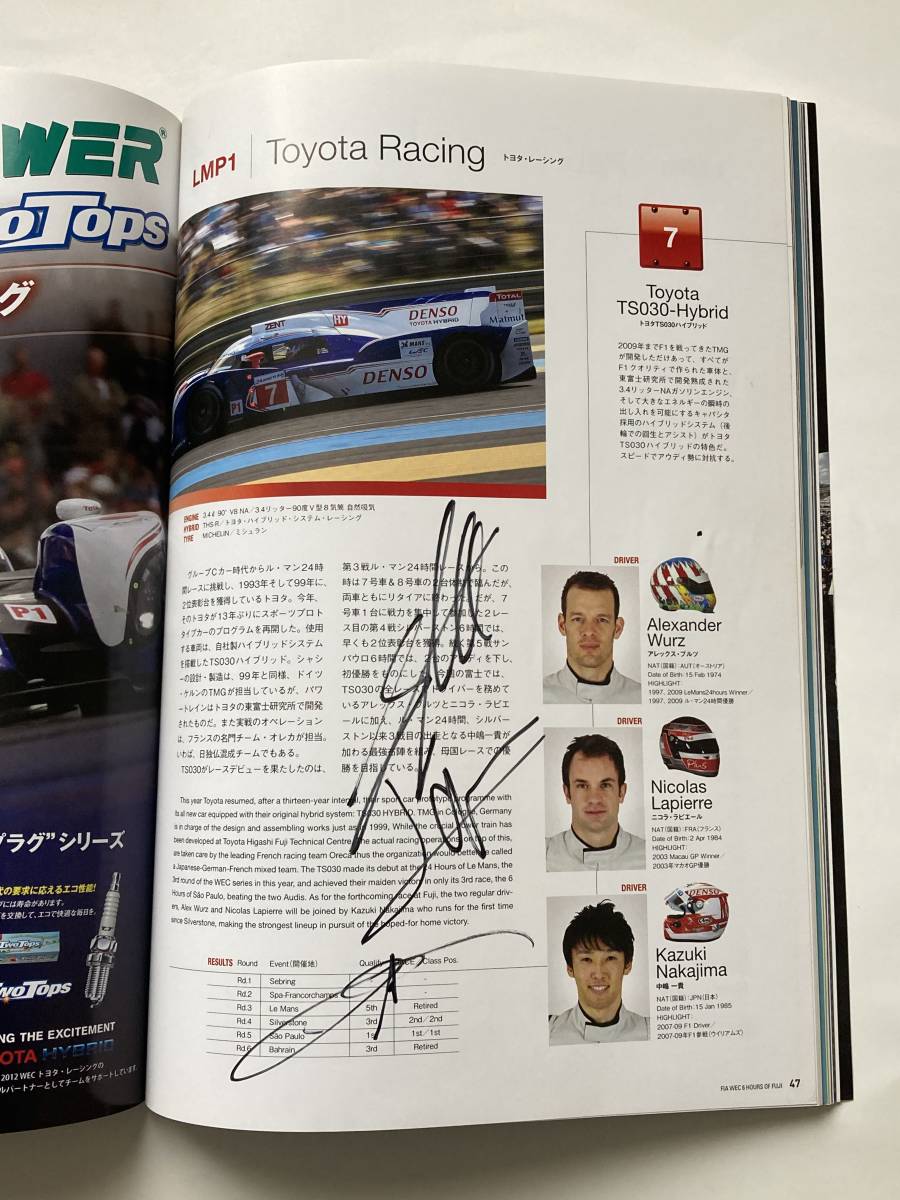 WER®
TwoTops
グ
P1
プラグ”シリーズ
代の要求に応えるエコ性能!
グには寿命があります。
を交換して、エコで快適な毎日を。
TwoTops
TwoTops
NG THE EXCITEMENT
OTA HYBRID
2012 WEC トヨタ・レーシングの
ルパートナーとしてチームをサポートしています。
LMP1 Toyota Racing トヨタ・レーシング
ZENT HY DENSO TOYOTA HYBRID TOTAL Matmut
24 MANS WEC
P1 7 DENSO
7
Toyota
TS030-Hybrid
トヨタTS030ハイブリッド
2009年までF1を戦ってきたTMG
が開発しただけあって、すべてが
F1クオリティで作られた車体と、
東富士研究所で開発熟成された
3.4リッターNAガソリンエンジン、
そして大きなエネルギーの瞬時の
出し入れを可能にするキャパシタ
採用のハイブリッドシステム(後
輪での回生とアシスト)がトヨタ
TS030ハイブリッドの特色だ。
スピードでアウディ勢に対抗する。
ENGINE 3.4ℓ 90° V8 NA/3.4リッター90度V型8気筒 自然吸気
HYBRID THS-R/トヨタ・ハイブリッド・システム・レーシング
TYRE MICHELIN/ミシュラン
グループCカー時代からル・マン24時
間レースに挑戦し、1993年そして99年に、
2位表彰台を獲得しているトヨタ。今年、
そのトヨタが13年ぶりにスポーツプロト
タイプカーのプログラムを再開した。使用
する車両は、自社製ハイブリッドシステム
を搭載したTS030ハイブリッド。シャシ
ーの設計・製造は、99年と同様、ドイツ
・ケルンのTMGが担当しているが、パワ
ートレインはトヨタの東富士研究所で開発
されたものだ。また実戦のオペレーション
は、フランスの名門チーム・オレカが担当。
いわば、日独仏混成チームでもある。
TS030がレースデビューを果たしたのは、
第3戦ル・マン24時間レースから。この
時は7号車&8号車の2台体制で臨んだが、
両車ともにリタイアに終わった。だが、7
号車1台に戦力を集中して参加した2レー
ス目の第4戦シルバーストン6時間では、
早くも2位表彰台を獲得。続く第5戦サン
パウロ6時間では、2台のアウディを下し、
初優勝をものにした。今回の富士では、
TS030の全レースでドライバーを務めて
いるアレックス・ブルツとニコラ・ラピエ
ールに加え、ル・マン24時間、シルバー
ストン以来3戦目の出走となる中嶋一貴が
加わる最強布陣を組み、母国レースでの優
勝を目指している。
This year Toyota resumed, after a thirteen-year interval, their sport car prototype programme with
its all new car equipped with their original hybrid system: TS030 HYBRID. TMG in Cologne, Germany
is in charge of the design and assembling works just as in 1999, While the crucial power train has
been developed at Toyota Higashi Fuji Technical Centre. The actual racing operations on top of this,
are taken care by the leading French racing team Oreca thus the organization would better be called
a Japanese-German-French mixed team. The TS030 made its debut at the 24 Hours of Le Mans, the
3rd round of the WEC series in this year, and achieved their maiden victory in only its 3rd race, the 6
Hours of São Paulo, beating the two Audis. As for the forthcoming race at Fuji, the two regular driv-
ers, Alex Wurz and Nicolas Lapierre will be joined by Kazuki Nakajima who runs for the first time
since Silverstone, making the strongest lineup in pursuit of the hoped-for home victory.
RESULTS Round Event(開催地) Qualify RACE/Class Pos.
Rd.1 Sebring - -
Rd.2 Spa-Francorchamps - -
Rd.3 Le Mans 5th Retired
Rd.4 Silverstone 3rd 2nd/2nd
Rd.5 São Paulo 1st 1st/1st
Rd.6 Bahrain 3rd Retired
DRIVER
Alexander
Wurz
アレックス・ブルツ
NAT(国籍):AUT(オーストリア)
Date of Birth: 15 Feb 1974
HIGHLIGHT:
1997, 2009 LeMans24hours Winner/
1997, 2009 ル・マン24時間優勝
DRIVER
Nicolas
Lapierre
ニコラ・ラピエール
NAT(国籍):FRA(フランス)
Date of Birth: 2 Apr 1984
HIGHLIGHT:
2003 Macau GP Winner/
2003年マカオGP優勝
DRIVER
DENSO
Kazuki
Nakajima
中嶋 一貴
NAT(国籍):JPN(日本)
Date of Birth: 15 Jan 1985
HIGHLIGHT:
2007-09 F1 Driver/
2007-09年F1参戦(ウイリアムズ)
FIA WEC 6 HOURS OF FUJI 47